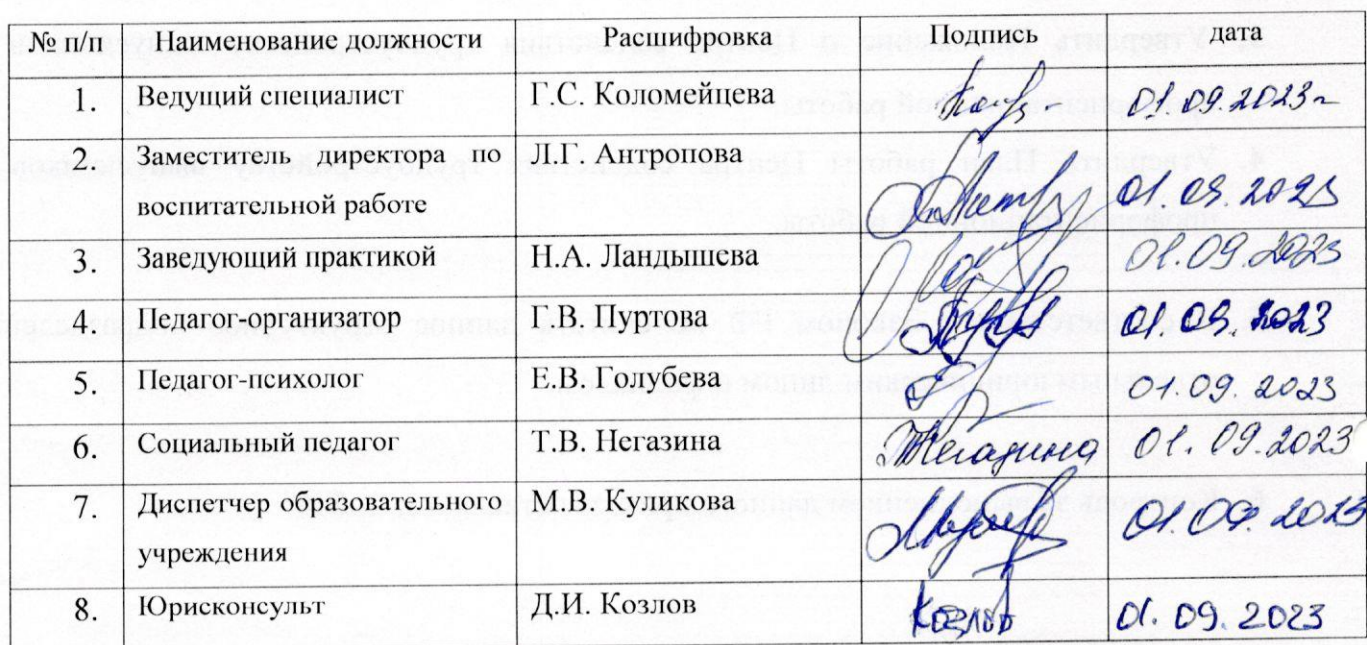 № п/п Наименование должности Расшифровка Подпись дата
1. Ведущий специалист Г.С. Коломейцева 01.09.2023г
2. Заместитель директора по Л.Г. Антропова 01.09.2023
воспитательной работе
3. Заведующий практикой Н.А. Ландышева 01.09.2023
4. Педагог-организатор Г.В. Пуртова 01.09.2023
5. Педагог-психолог Е.В. Голубева 01.09.2023
6. Социальный педагог Т.В. Негазина Негазина 01.09.2023
7. Диспетчер образовательного М.В. Куликова 01.09.2023
учреждения
8. Юрисконсульт Д.И. Козлов Козлов 01.09.2023